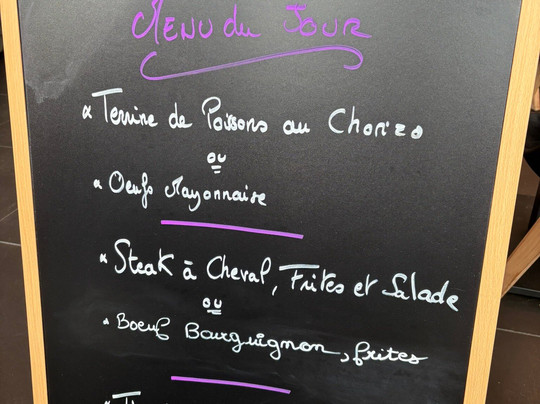 MENU du JOUR
Terrine de Poissons au Chorizo
ou
Oeufs Mayonnaise
Steak à Cheval, Frites et Salade
ou
Boeuf Bourguignon, frites